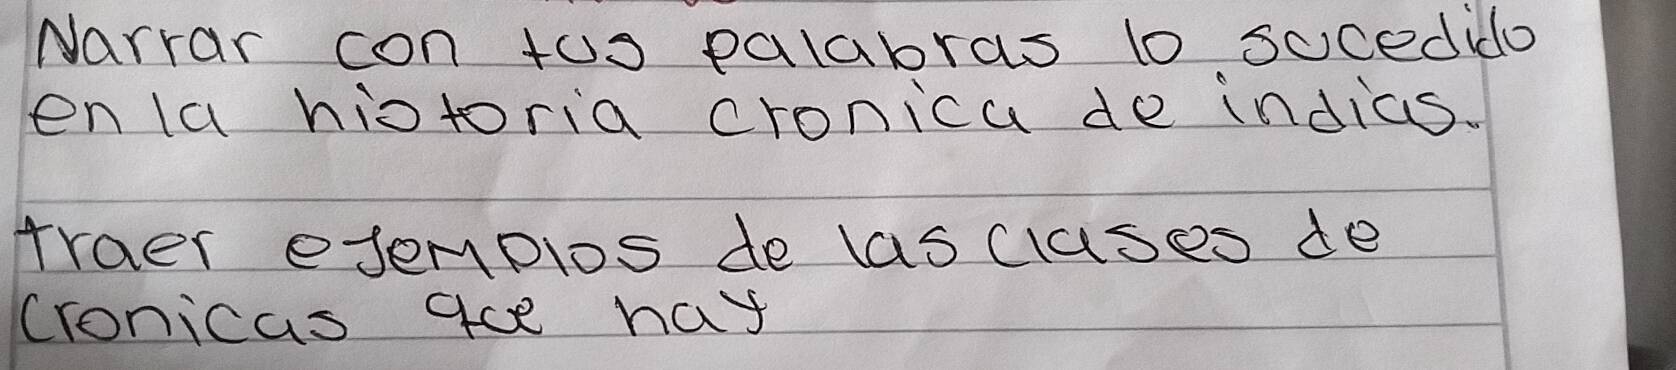 Narrar con tus palabras lo sucedido
en la historia cronica de indias.
traer ejemplos de las clases de
cronicas que hay